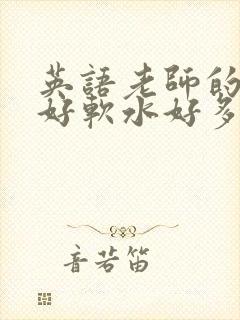 英語老師的
好軟水好多
音若笛